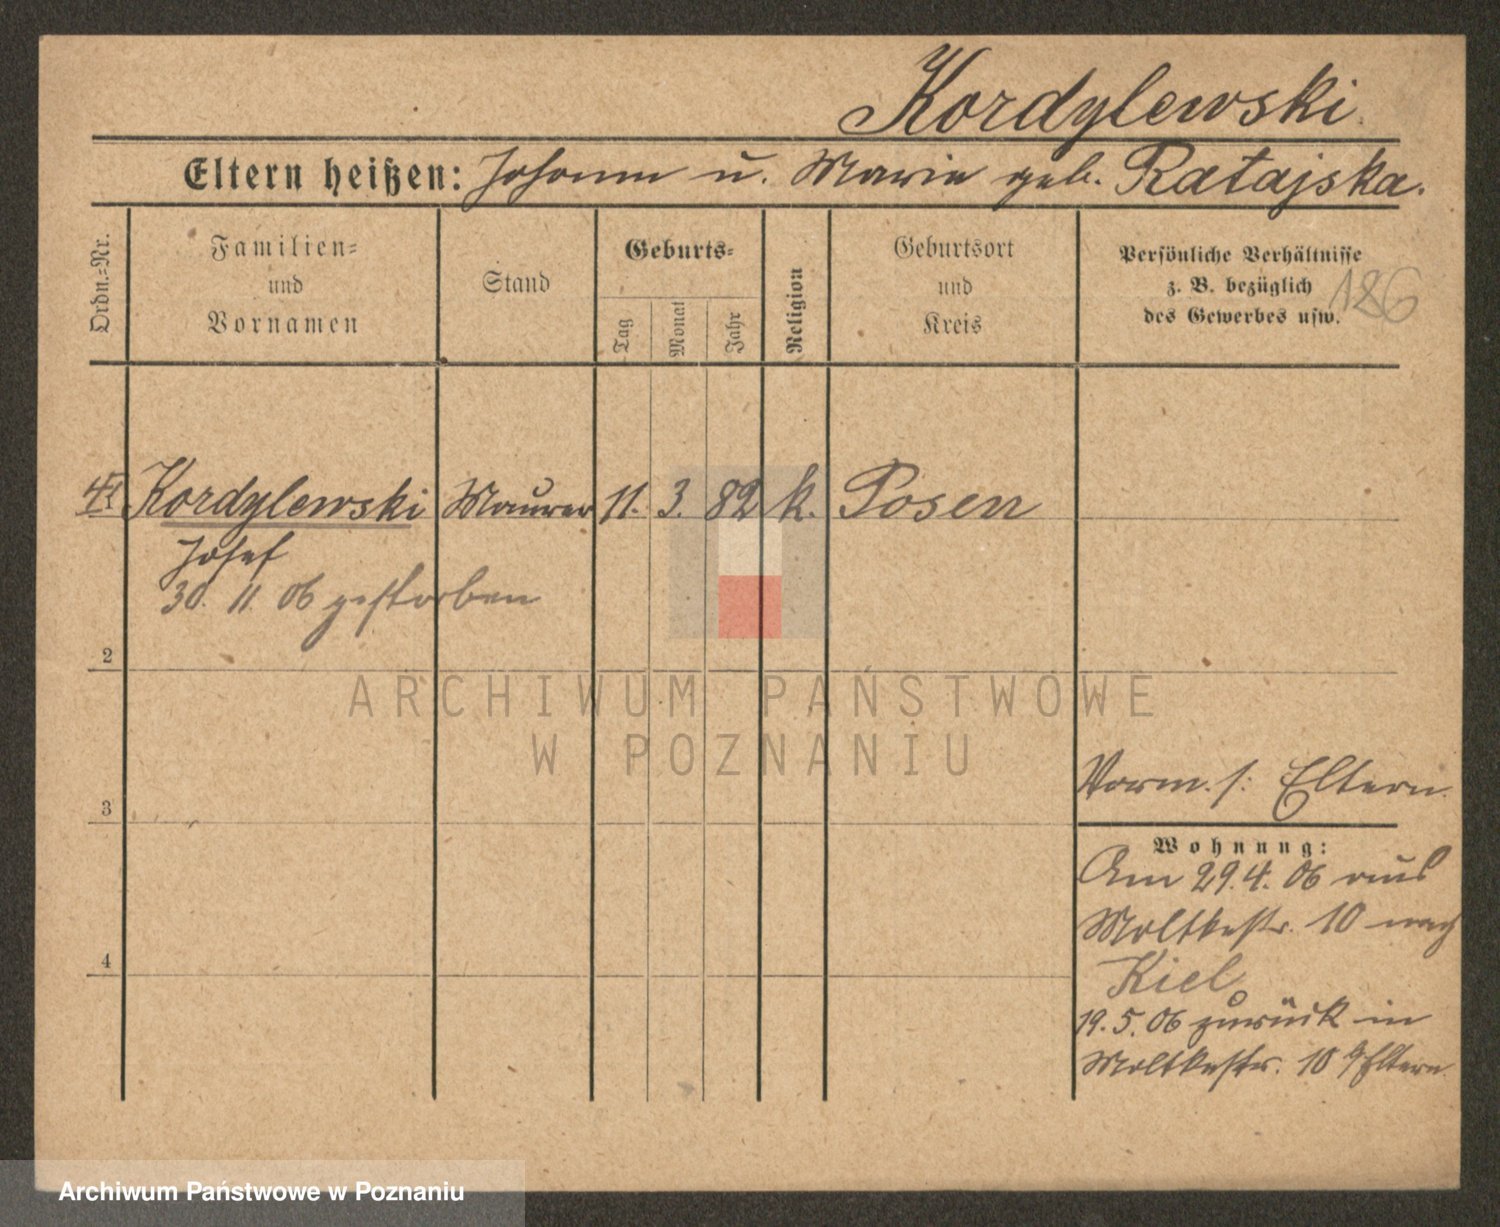 Kordylewski.
Eltern heißen: Johann u. Marie geb. Ratajska.
Ordn.=Nr.
Familien=
und
Vornamen
Stand
Geburts=
Tag
Monat
Jahr
Religion
Geburtsort
und
Kreis
Persönliche Verhältnisse
z. B. bezüglich
des Gewerbes usw.
186
Kordylewski Maurer 11. 3. 82 k. Posen
Josef
30. 11. 06 gestorben
2
ARCHIWUM PAŃSTWOWE
W POZNANIU
Vorm. s: Eltern.
3
Wohnung:
Am 29.4.06 aus
Moltkestr. 10 nach
Kiel
4
19.5.06 zurück in
Moltkestr. 10 Eltern.
Archiwum Państwowe w Poznaniu